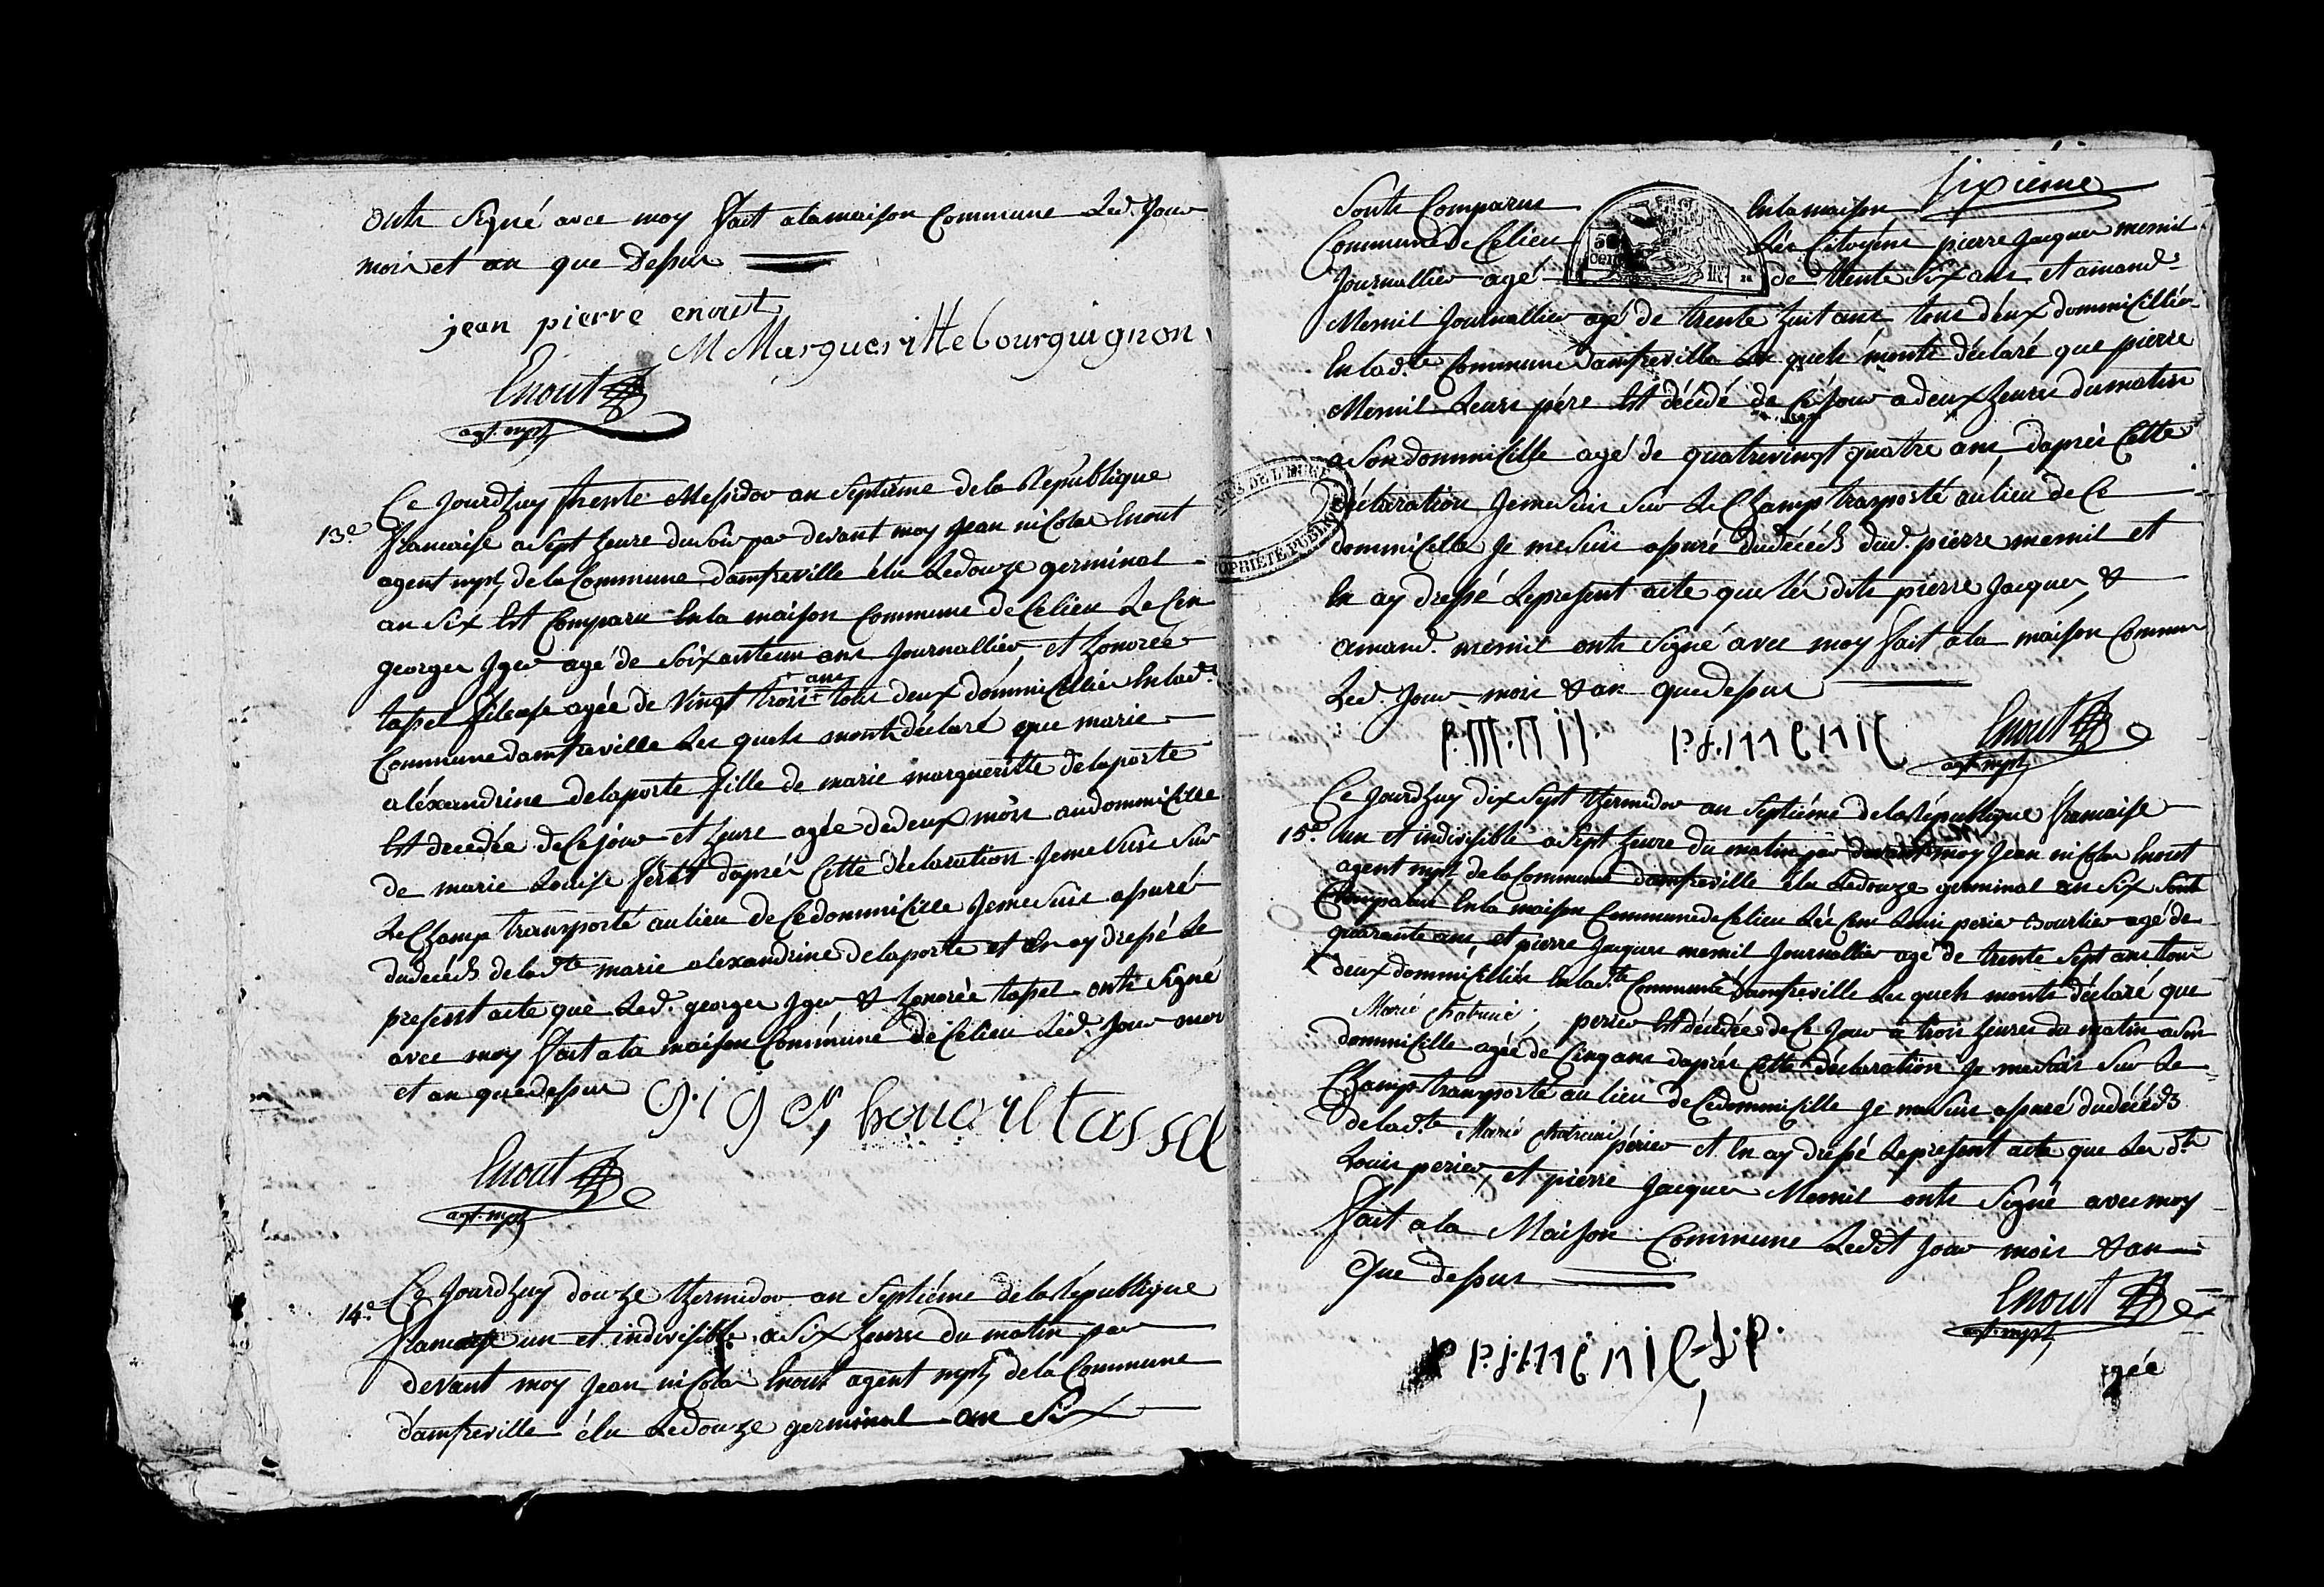 onts signé avec moy fait a la maison Commune Led. Jour
mois et an que Dessus
jean pierre enout
M Margueritte bourguignon
Enout
agt. mpl
13e
Ce Jourdhuy trente Messidor an Septiéme de la République
francaise a Sept heure du Soir par devant moy Jean nicolas Enout
agent mpl de la Commune damfreville élu Ledouze germinal
an Six Est Comparu En la maison Commune de Celieu Le Cen
george Iger agé de Soixanteun ans Journallier, et honorée
tassel fileuse agée de Vingt trois ans tous deux dommicilliés Enlad.
Commune damfreville Les quels monts déclaré que marie
aléxandrine delaporte fille de marie margueritte delaporte
Est decedée de Cejour et heure agée dedeux mois audommicille
de marie Louise feret daprés Cette déclaration Jeme Suis Sur
Le Champ transporté aulieu de Cedommicille Jemesuis assuré
dudécéds delad.te marie aléxandrine delaporte et En ay dressé Le
present acte que Led. george Iger & honorée tassel onts Signé
avec moy fait a la maison Commune de Celieu Led. Jour mois
et an quedessus
g. iger, honoré tassel
Enout
agt. mpl
14e
Ce Jourdhuy douze thermidor an Septiéme delaRépublique
francaise un et indivisible a Six heures du matin par
devant moy Jean nicolas Enout agent mpl de la Commune
damfreville élu Ledouze germinal an Six
sixieme
Sonts Comparus En la maison
Commune de Celieu Les Citoyens pierre Jacques mesnil
Journallier agé de trente Six ans et amand.
Mesnil Journallier agé de trente huit ans, tous deux dommicilliés
En lad.te Commune damfreville Les quels monts déclaré que pierre
Mesnil Leurs pére Est décédé de Cejour a deux heures dumatin
a Son dommicille agé de quatrevingt quatre ans, daprés Cette
déclaration Jemesuis Sur Le Champ trasporté aulieu de Ce
dommicille Je me Suis assuré dudécéds dud. pierre mesnil et
En ay dressé Lepresent acte que les dits pierre Jacques, &
amand. mesnil onts Signé avec moy fait a la maison Commune
Led. Jour mois & an quedessus
Enout
agt. mpl
Ce Jourdhuy dix Sept thermidor an Septiéme de la République francaise
15e
un et indivisible a Sept heure du matin par devant moy Jean nicolas Enout
agent mpl de la Commune damfreville élu Ledouze germinal an Six Sont
Comparus En la maison Commune de Celieu Les Cen Louis perier Bourlier agé de
quarante ans, et pierre Jacques mesnil Journallier agé de trente Sept ans tous
deux dommicilliés Enlad.te Commune damfreville Les quels monts déclaré que
Marie perier Est décédée de Ce Jour a trois heures du matin a Son
dommicille agée de Cinq ans daprés Cette déclaration Je me Suis Sur Le
Champ transporté au lieu de Cedommicille Je me Suis assuré dudécéds
delad.te Marie périer et En ay dressé Lepresent acte que Les d.ts
Louis perier, et pierre Jacques Mesnil onts Signé avec moy
fait a la Maison Commune Ledit Jour mois & an
Que dessus
Enout
agt. mpl
agée